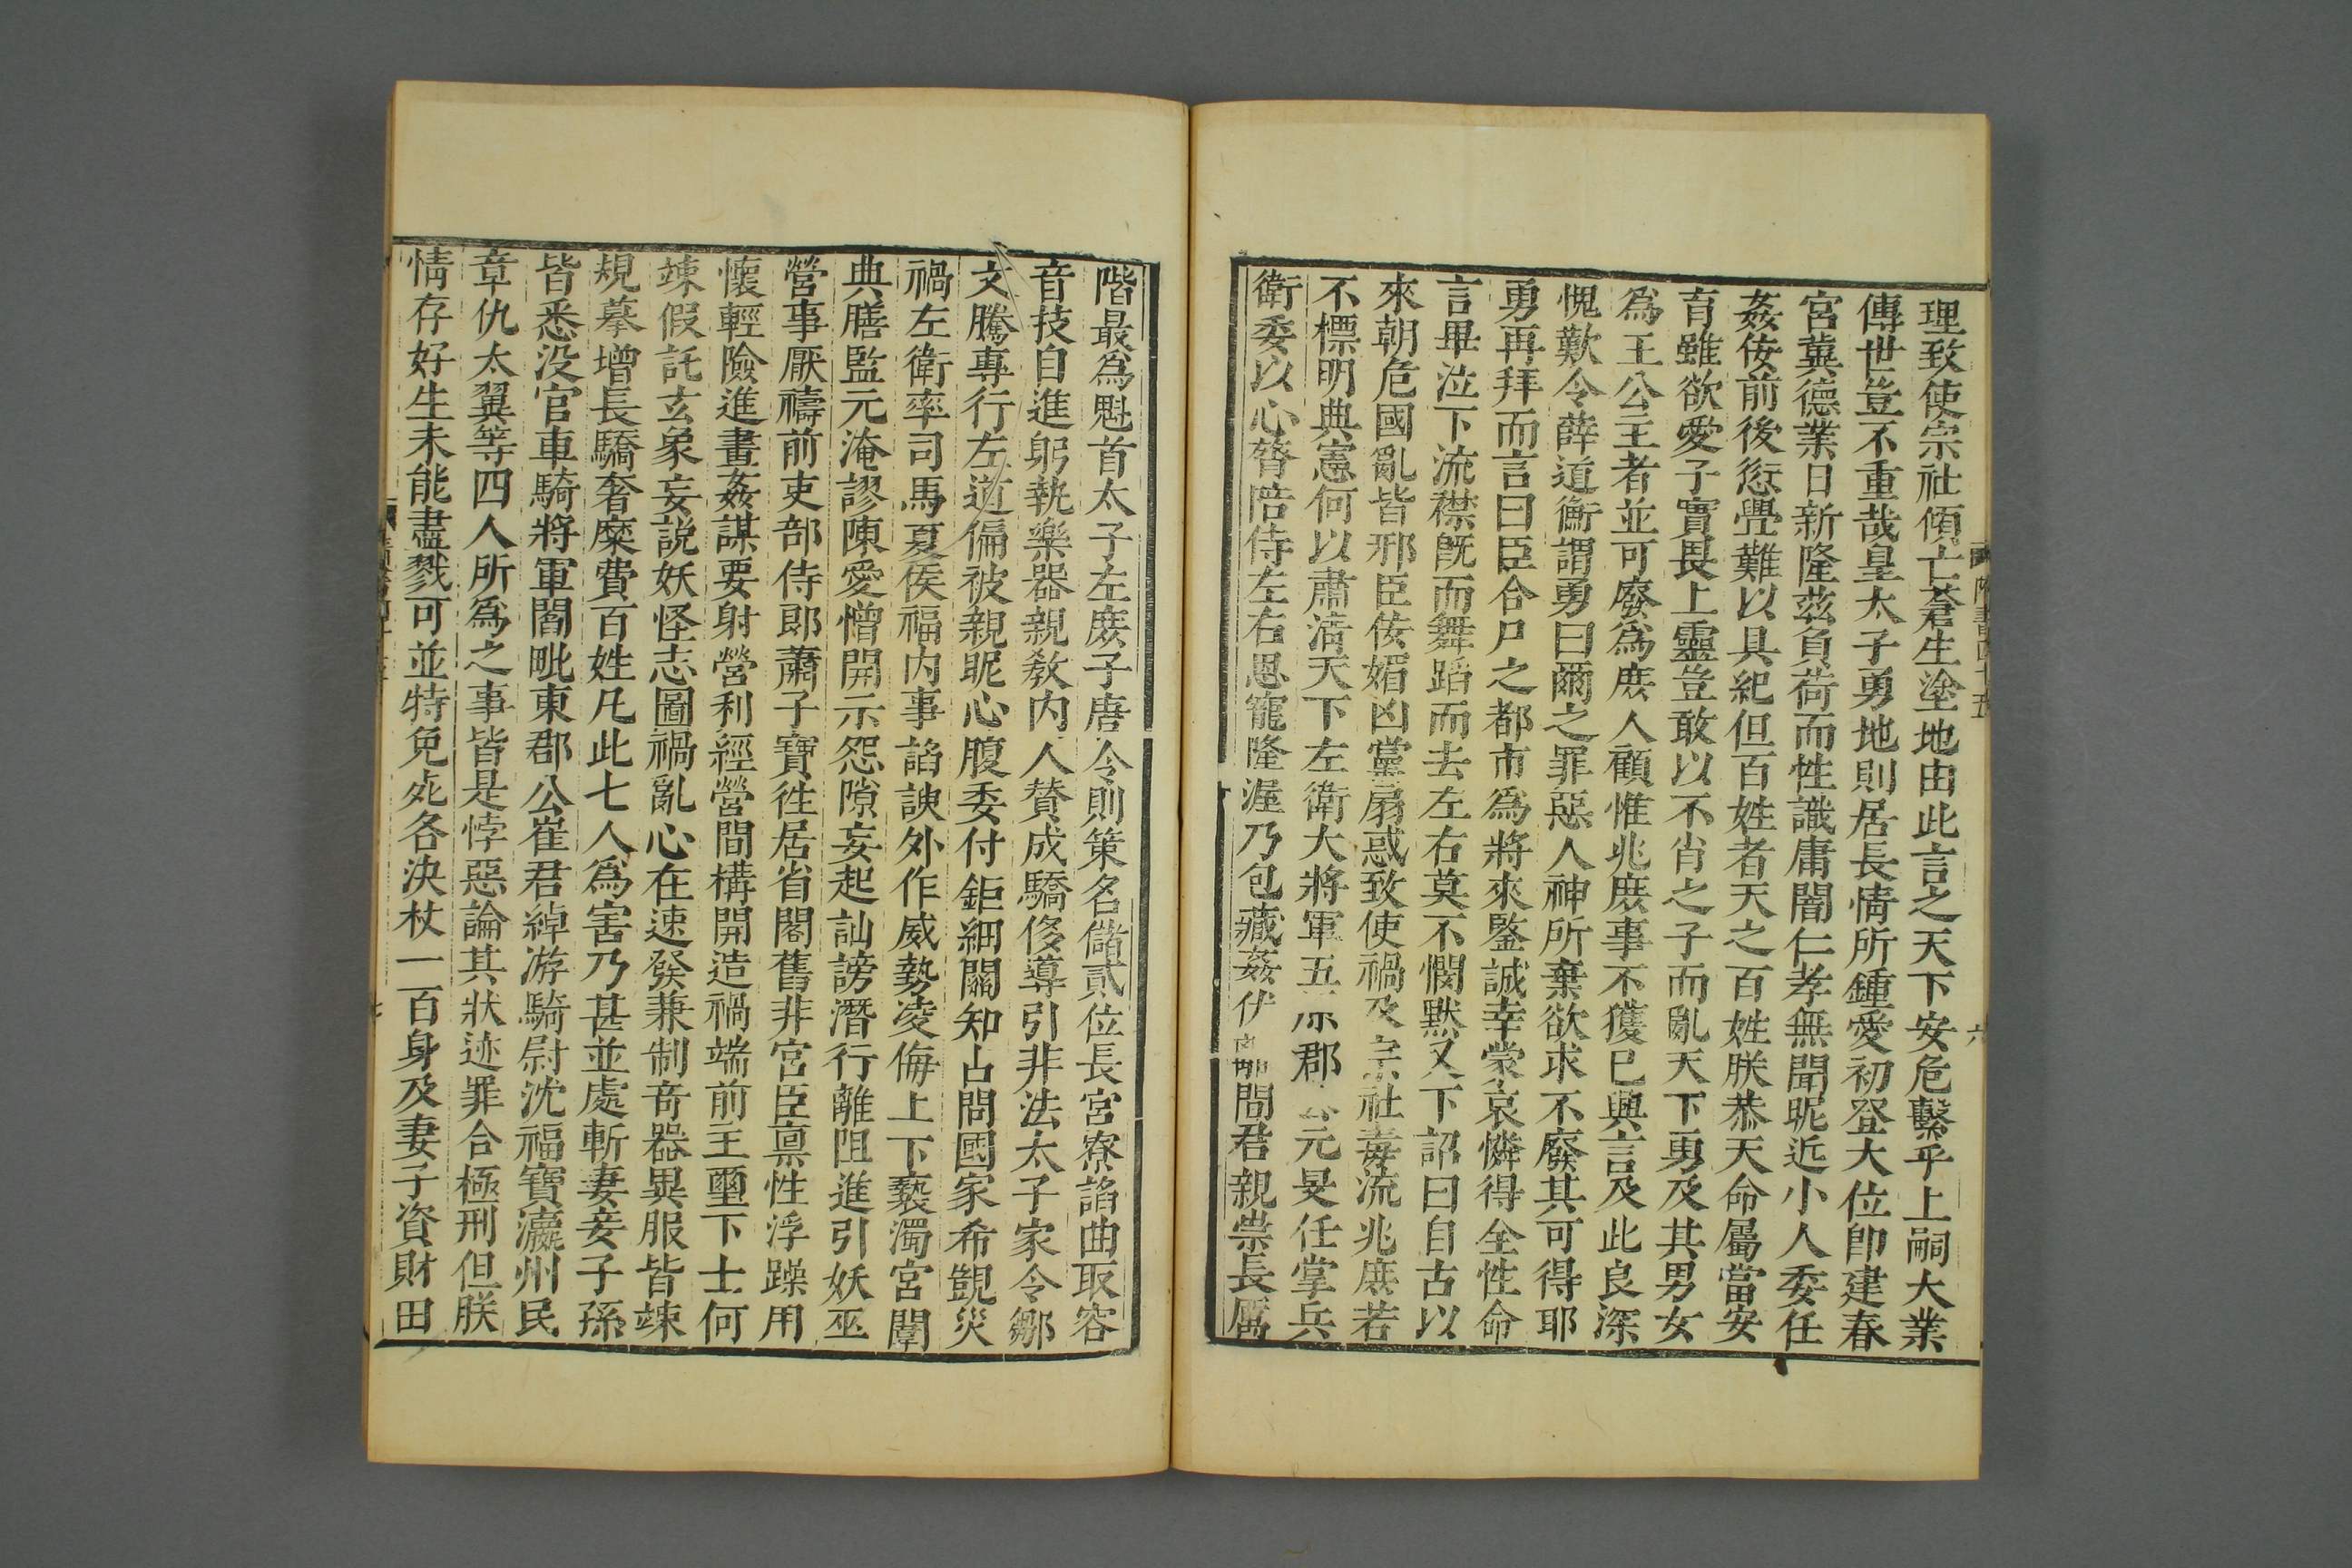 理致使宗社傾亡蒼生塗地由此言之天下安危繫乎上嗣大業
傳世豈不重哉皇太子勇地則居長情所鍾愛初登大位卽建春
宮冀德業日新隆茲負荷而性識庸闇仁孝無聞昵近小人委任
姦佞前後愆釁難以具紀但百姓者天之百姓朕恭天命屬當安
育雖欲愛子實畏上靈豈敢以不肖之子而亂天下勇及其男女
爲王公主者並可廢爲庶人顧惟兆庶事不獲已興言及此良深
愧歎令薛道衡謂勇曰爾之罪惡人神所棄欲求不廢其可得耶
勇再拜而言曰臣合尸之都市爲將來鑒誡幸蒙哀憐得全性命
言畢泣下流襟旣而舞蹈而去左右莫不憫默又下詔曰自古以
來朝危國亂皆邪臣佞媚凶黨扇惑致使禍及宗社毒流兆庶若
不標明典憲何以肅清天下左衛大將軍五原郡公元旻任掌兵
衛委以心膂陪侍左右恩寵隆渥乃包藏姦伏離間君親崇長厲
隋書四十五
六
階最爲魁首太子左庶子唐令則策名儲貳位長宮寮諂曲取容
音技自進躬執樂器親敎内人贊成驕侈導引非法太子家令鄒
文騰專行左道偏被親昵心腹委付鉅細關知占問國家希覬災
禍左衛率司馬夏侯福内事諂諛外作威勢凌侮上下褻濁宮闈
典膳監元淹謬陳愛憎開示怨隙妄起訕謗潛行離阻進引妖巫
營事厭禱前吏部侍郎蕭子寶徃居省閣舊非宮臣禀性浮躁用
懷輕險進畫姦謀要射營利經營間構開造禍端前主璽下士何
竦假託玄象妄説妖怪志圖禍亂心在速發兼制奇器異服皆竦
規摹增長驕奢糜費百姓凡此七人爲害乃甚並處斬妻妾子孫
皆悉没官車騎將軍閻毗東郡公崔君綽游騎尉沈福寶瀛州民
章仇太翼等四人所爲之事皆是悖惡論其狀迹罪合極刑但朕
情存好生未能盡戮可並特免死各決杖一百身及妻子資財田